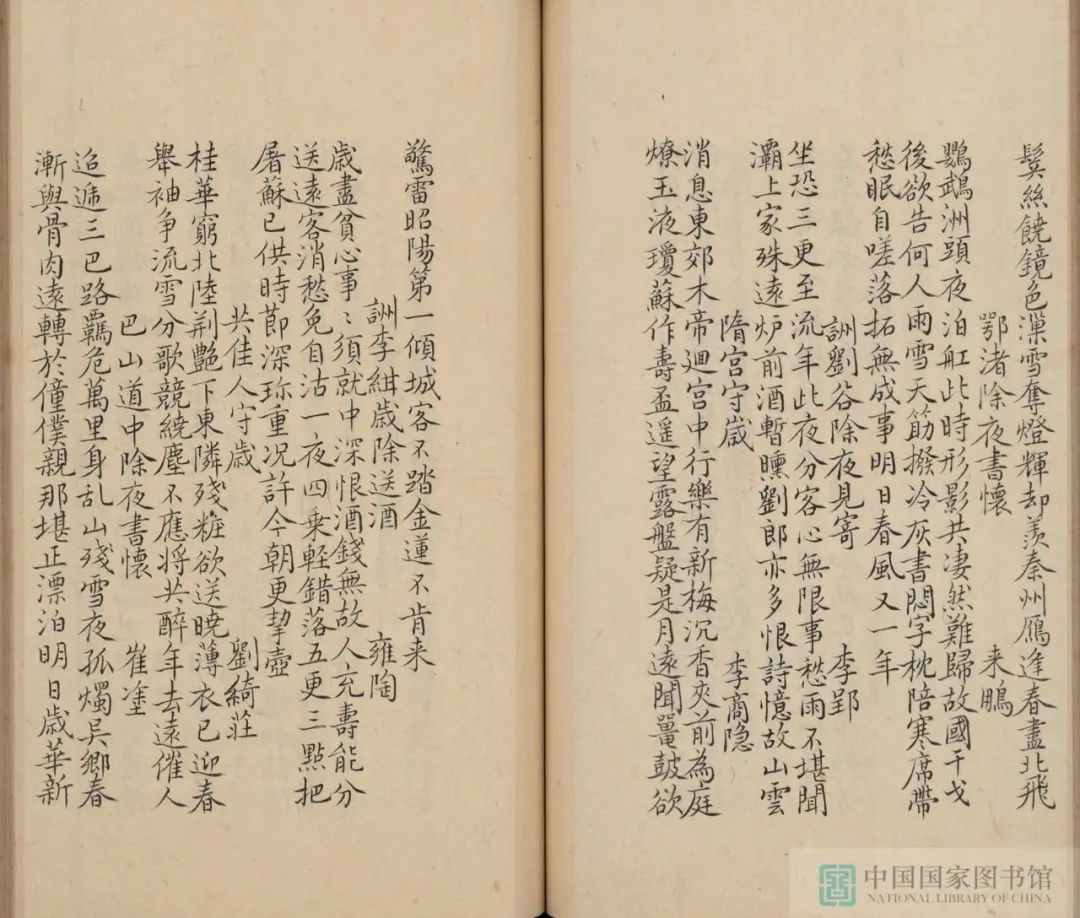 鬂絲饒鏡色灢雪奪燈輝却羨秦州鴈逢春盡北飛
鄂渚除夜書懷 来鵬
鸚鵡洲頭夜泊舡此時形影共凄然難歸故國干戈
後欲告何人雨雪天筯撥冷灰書悶字枕陪寒席帶
愁眠自嗟落拓無成事明日春風又一年
詶劉谷除夜見寄 李郢
坐恐三更至流年此夜分客心無限事愁雨不堪聞
灞上家殊遠炉前酒暫醺劉郎亦多恨詩憶故山雲
隋宫守歲 李商隐
消息東郊木帝廻宫中行樂有新梅沉香夾前為庭
燎玉液瓊蘇作壽盃遥望露盤疑是月遠聞鼉皷欲
驚雷昭陽第一傾城客不踏金蓮不肯来
詶李紺歲除送酒 雍陶
歲盡貧心事〻須就中深恨酒錢無故人充壽能分
送遠客消愁免自沽一夜四乘軽錯落五更三點把
屠蘇已供時節深珎重况許今朝更挈壺
共佳人守歲 劉綺莊
桂華窮北陸荆艷下東隣殘粧欲送曉薄衣已迎春
舉袖争流雪分歌競繞塵不應將共醉年去遠催人
巴山道中除夜書懷 崔塗
迢遞三巴路羈危萬里身乱山殘雪夜孤燭吴鄉春
漸與骨肉遠轉於僮僕親那堪正漂泊明日歲華新
中国国家图书馆
NATIONAL LIBRARY OF CHINA